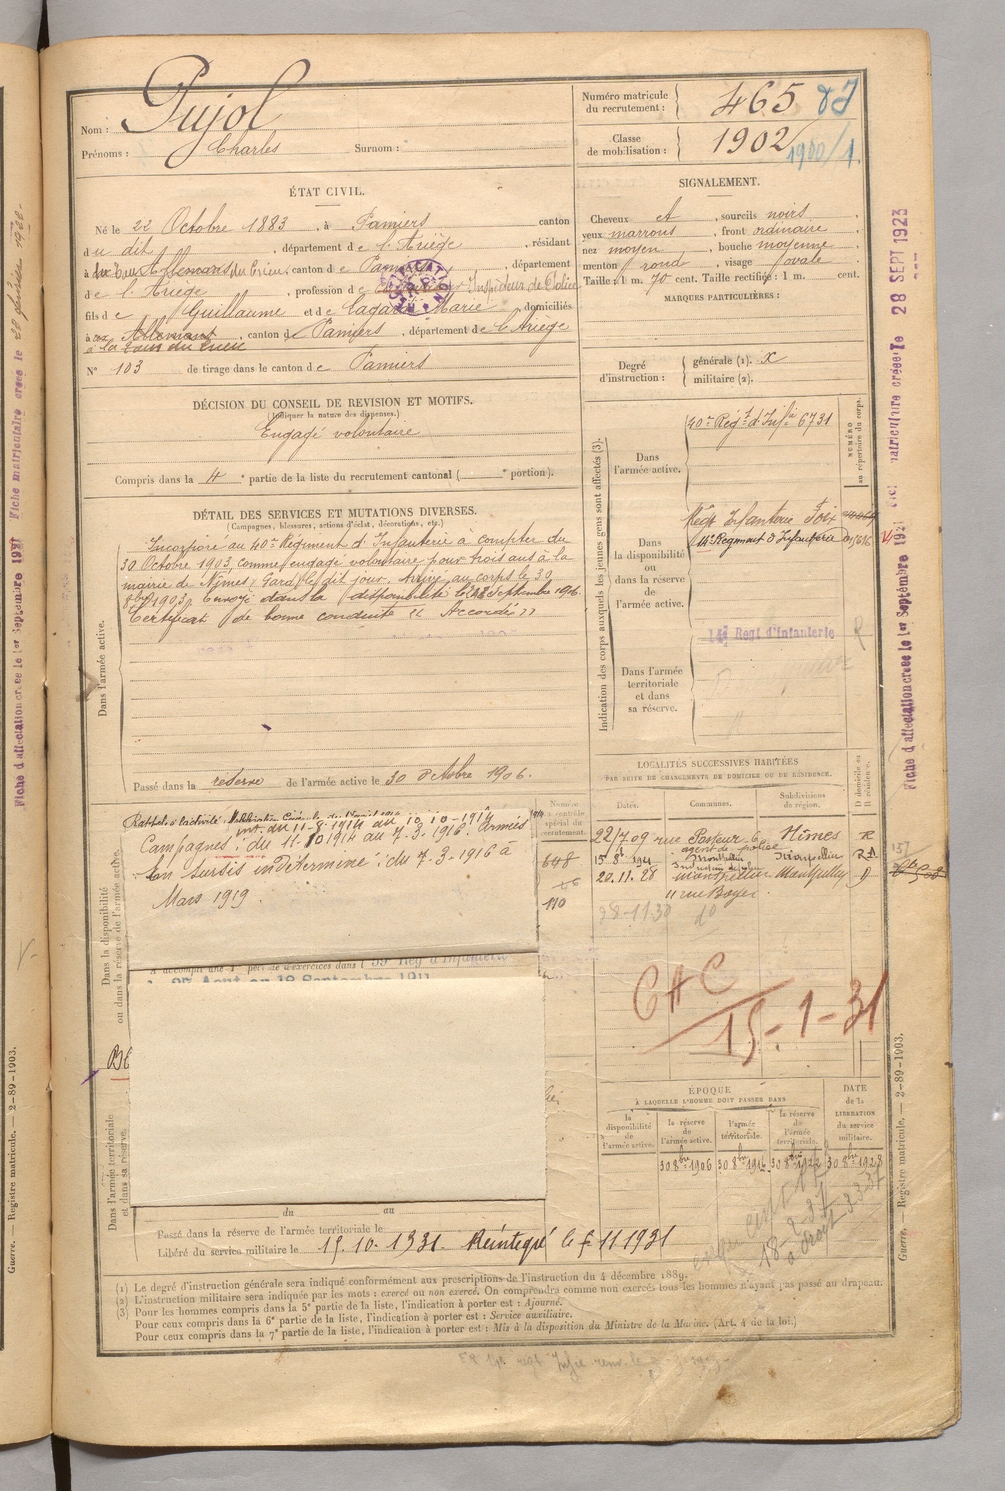 Nom : Pujol
Prénoms : Charles Surnom :
Numéro matricule du recrutement : 465
Classe de mobilisation : 1902
1900/1
ÉTAT CIVIL.
Né le 22 Octobre 1883, à Pamiers canton
du dit, département de l'Ariège, résidant
à canton de département
de l'Ariège, profession de Inspecteur de Police
fils de Guillaume et de Marie, domiciliés
à canton de Pamiers, département de l'Ariège
à la Tour du Crieu
N° 103 de tirage dans le canton de Pamiers
SIGNALEMENT.
Cheveux et, sourcils noirs,
yeux marrons, front ordinaire,
nez moyen, bouche moyenne,
menton rond, visage ovale.
Taille : 1 m. 70 cent. Taille rectifiée : 1 m. cent.
MARQUES PARTICULIÈRES :
Degré d'instruction : générale (1). X
militaire (2).
DÉCISION DU CONSEIL DE REVISION ET MOTIFS.
(Indiquer la nature des dispenses.)
Engagé volontaire
Compris dans la 4e partie de la liste du recrutement cantonal ( e portion).
DÉTAIL DES SERVICES ET MUTATIONS DIVERSES.
(Campagnes, blessures, actions d'éclat, décorations, etc.)
Dans l'armée active.
Incorporé au 40e Régiment d'Infanterie à compter du
30 Octobre 1903, comme engagé volontaire pour trois ans à la
mairie de Nîmes, Gard, le dit jour. Arrivé au corps le 30
8bre 1903. Envoyé dans la disponibilité le 22 Septembre 1906.
Certificat de bonne conduite « Accordé »
Passé dans la réserve de l'armée active le 30 Octobre 1906.
Indication des corps auxquels les jeunes gens sont affectés (3).
NUMÉRO au répertoire du corps.
Dans l'armée active.
40e Régt d'Infie 6731
Dans la disponibilité ou dans la réserve de l'armée active.
Régt Infanterie Foix
14e Régiment d'Infanterie
Dans l'armée territoriale et dans sa réserve.
14e Regt d'Infanterie
R
Dans la disponibilité ou dans la réserve de l'armée active.
Campagnes : du 11-10 1914 au 7-3-1916. Armées
int. du 11-8-1914 au 10-10-1914
En Sursis indéterminé : du 7-3-1916 à
Mars 1919.
Numéro au contrôle spécial du recrutement.
648
110
LOCALITÉS SUCCESSIVES HABITÉES
PAR SUITE DE CHANGEMENTS DE DOMICILE OU DE RÉSIDENCE.
Dates. Communes. Subdivisions de région. D domicile ou R résidence.
22/7.09 rue Pasteur 6 Nîmes R
agent de police
20.11.28 Montpellier Montpellier D
11 rue Boyer
28-11.30 do
A accompli une 1e période d'exercices dans l 59 Reg d'Infanterie
CAC
15-1-31
ÉPOQUE
À LAQUELLE L'HOMME DOIT PASSER DANS
la disponibilité de l'armée active.
la réserve de l'armée active.
l'armée territoriale.
la réserve de l'armée territoriale.
DATE de la LIBÉRATION du service militaire.
30 8bre 1906 30 8bre 1916 30 8bre 1922 30 8bre 1928
Dans l'armée territoriale et dans sa réserve.
du au
Passé dans la réserve de l'armée territoriale le
Libéré du service militaire le 15-10-1931. Réintégré le 11 1931
(1) Le degré d'instruction générale sera indiqué conformément aux prescriptions de l'instruction du 4 décembre 1889.
(2) L'instruction militaire sera indiquée par les mots : exercé ou non exercé. On comprendra comme non exercé, tous les hommes n'ayant pas passé au drapeau.
(3) Pour les hommes compris dans la 5e partie de la liste, l'indication à porter est : Ajourné.
Pour ceux compris dans la 6e partie de la liste, l'indication à porter est : Service auxiliaire.
Pour ceux compris dans la 7e partie de la liste, l'indication à porter est : Mis à la disposition du Ministre de la Marine. (Art. 4 de la loi.)
Guerre. — Registre matricule. — 2-89-1903.
Guerre. — Registre matricule. — 2-89-1903.
Fiche d'affectation créée le 1er Septembre 1921
Fiche matriculaire créée le
Fiche d'affectation créée le 1er Septembre 1921
matriculaire créée le 28 SEPT 1923